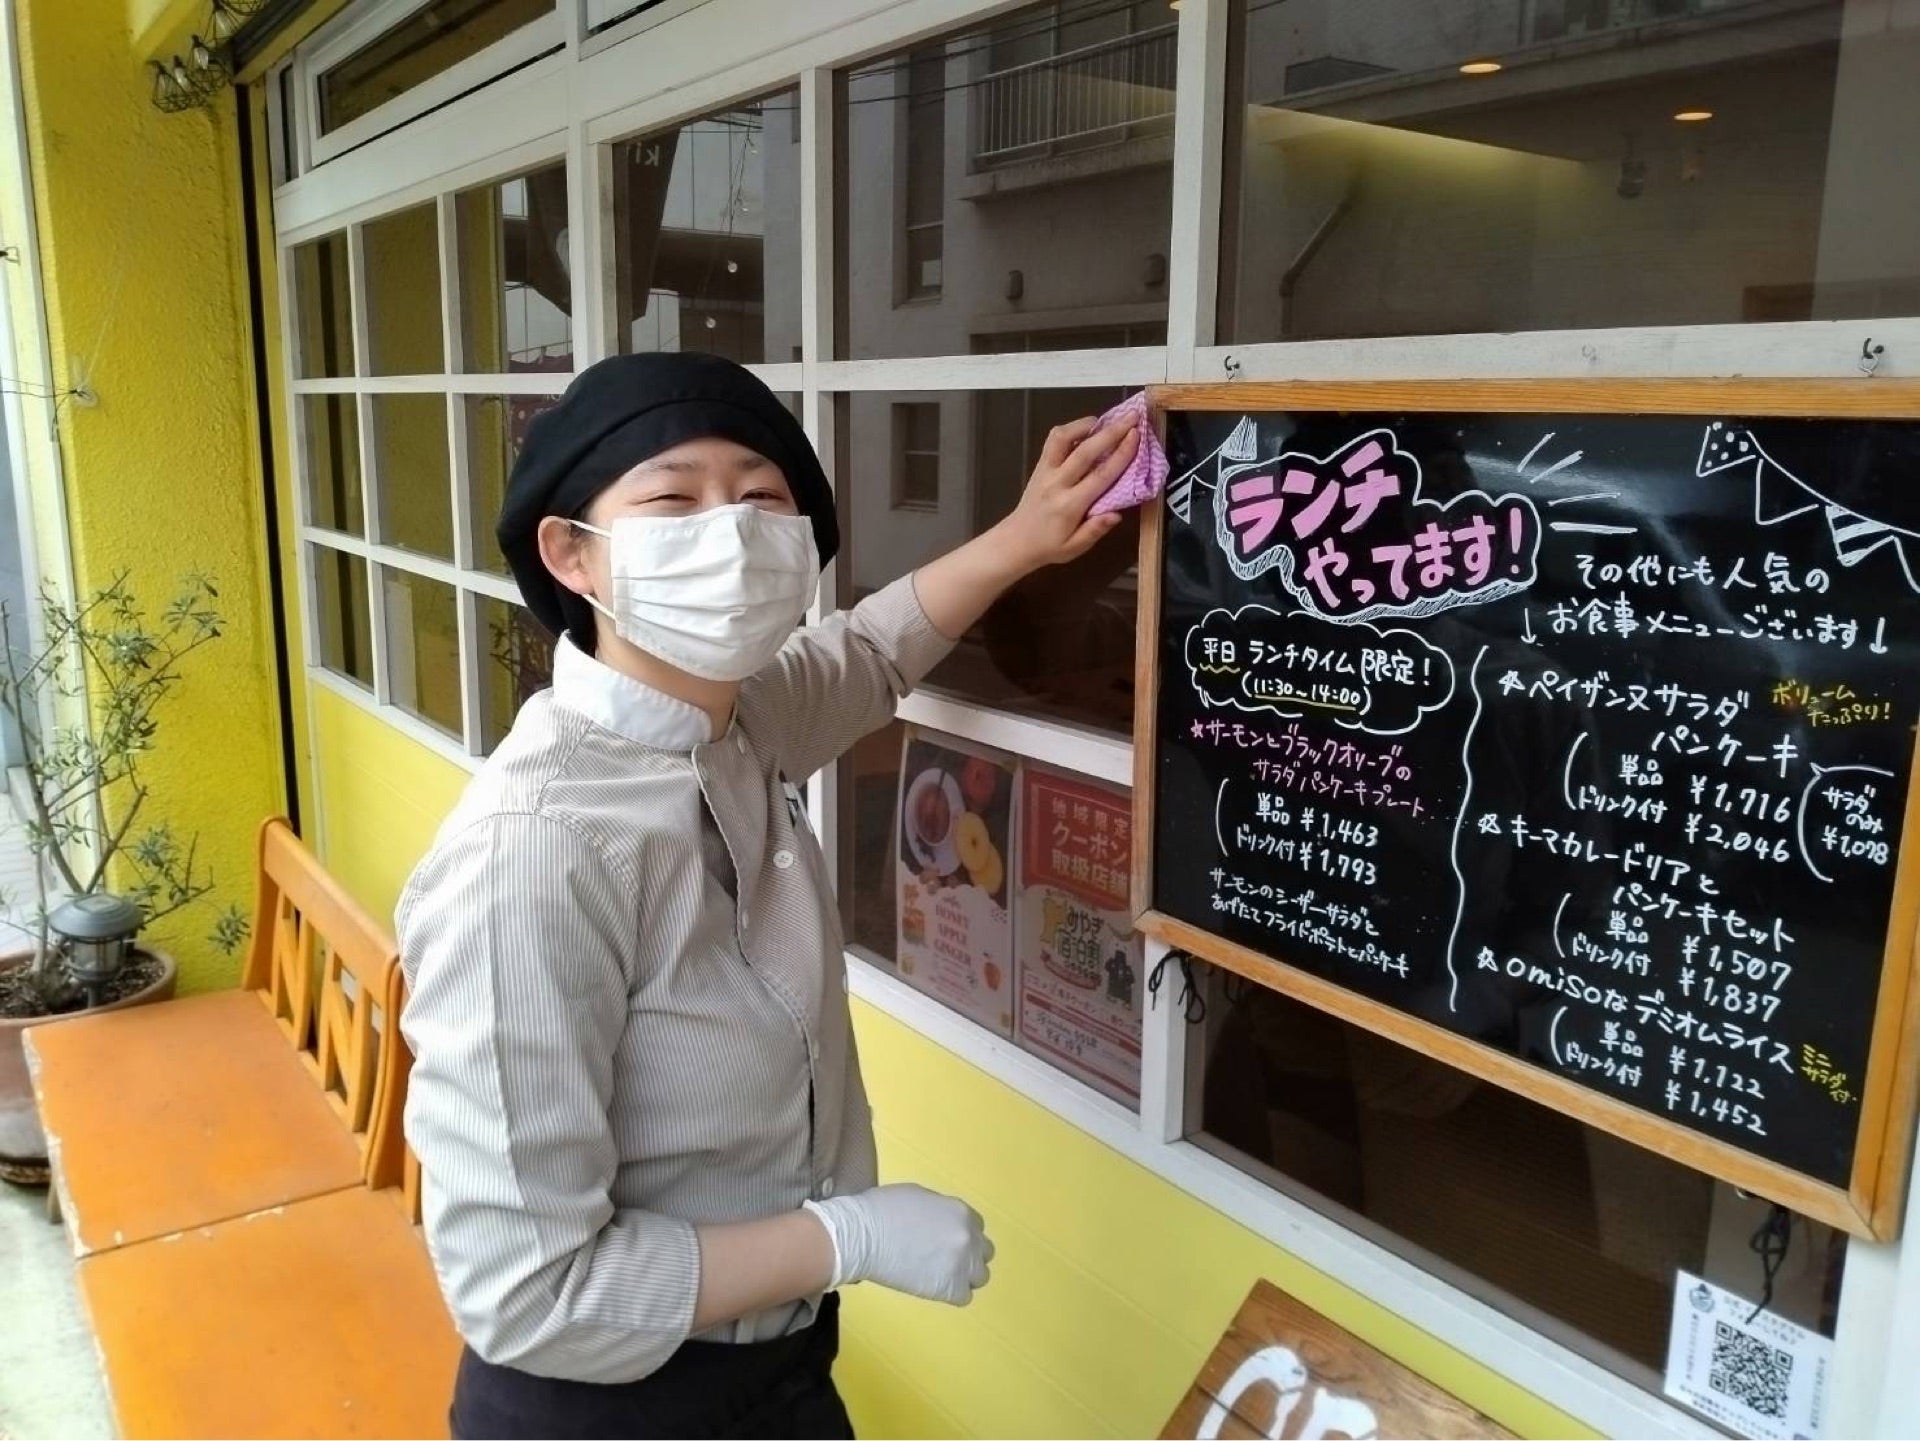 ランチ
やってます!
平日 ランチタイム限定!
(11:30~14:00)
☆サーモンとブラックオリーブの
サラダパンケーキプレート
単品 ¥1,463
ドリンク付 ¥1,793
サーモンのシーザーサラダと
あげたてフライドポテトとパンケーキ
その他にも人気の
↓お食事メニューございます↓
☆ペイザンヌサラダ
パンケーキ
ボリューム
たっぷり!
単品 ¥1,716
ドリンク付 ¥2,046
サラダ
のみ
¥1,078
☆キーマカレードリアと
パンケーキセット
単品 ¥1,507
ドリンク付 ¥1,837
☆omisoなデミオムライス
ミニ
サラダ付
単品 ¥1,122
ドリンク付 ¥1,452
HONEY
APPLE
GINGER
地域限定
クーポン
取扱店舗
みやぎ
宿泊割